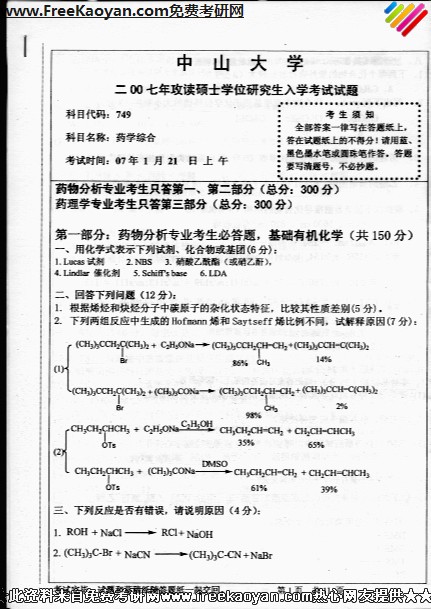 www.FreeKaoyan.com免费考研网
中 山 大 学
二00七年攻读硕士学位研究生入学考试试题
科目代码：749
科目名称：药学综合
考试时间：07年1月21日上午
考生须知
全部答案一律写在答题纸上，
答在试题纸上的不得分！请用蓝、
黑色墨水笔或圆珠笔作答。答题
要写清题号，不必抄题。
药物分析专业考生只答第一、第二部分（总分：300分）
药理学专业考生只答第三部分（总分：300分）
第一部分：药物分析专业考生必答题，基础有机化学（共150分）
一、用化学式表示下列试剂、化合物或基团(6分)：
1. Lucas 试剂 2. NBS 3. 硝酸乙酰酯（或硝乙酐），
4. Lindlar 催化剂 5. Schiff's base 6. LDA
二、回答下列问题（12分）：
1. 根据烯烃和炔烃分子中碳原子的杂化状态特征，比较其性质差别(5分)。
2. 下列两组反应中生成的Hofmann烯和Saytseff烯比例不同，试解释原因(7分)：
(CH₃)₃CCH₂C(CH₃)₂ + C₂H₅ONa → (CH₃)₃CCH₂C=CH₂+(CH₃)₃CCH=C(CH₃)₂
Br 86% CH₃ 14%
(1)
(CH₃)₃CCH₂C(CH₃)₂ + (CH₃)₃CONa → (CH₃)₃CCH₂C=CH₂+(CH₃)₃CCH=C(CH₃)₂
Br 98% CH₃ 2%
CH₃CH₂CHCH₃ + C₂H₅ONa C₂H₅OH → CH₃CH₂CH=CH₂ + CH₃CH=CHCH₃
OTs 35% 65%
(2)
CH₃CH₂CHCH₃ + (CH₃)₃CONa DMSO → CH₃CH₂CH=CH₂ + CH₃CH=CHCH₃
OTs 61% 39%
三、下列反应是否有错误，请说明原因（4分）：
1. ROH + NaCl → RCl + NaOH
2. (CH₃)₃C-Br + NaCN → (CH₃)₃C-CN + NaBr
此资料来自免费考研网www.freekaoyan.com热心网友提供★★